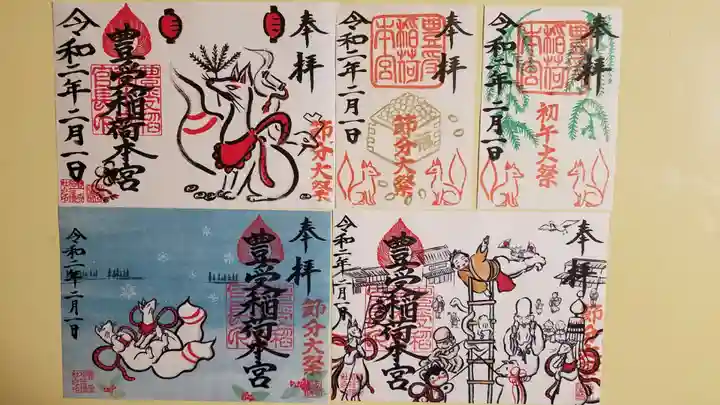 奉拝
節分大祭
豊受稲荷本宮
令和二年二月一日
奉拝
豊受
稲荷
本宮
節分大祭
令和二年二月一日
奉拝
豊受
稲荷
本宮
初午大祭
令和二年二月一日
奉拝
節分大祭
豊受稲荷本宮
令和二年二月一日
奉拝
節分
豊受稲荷本宮
令和二年二月一日